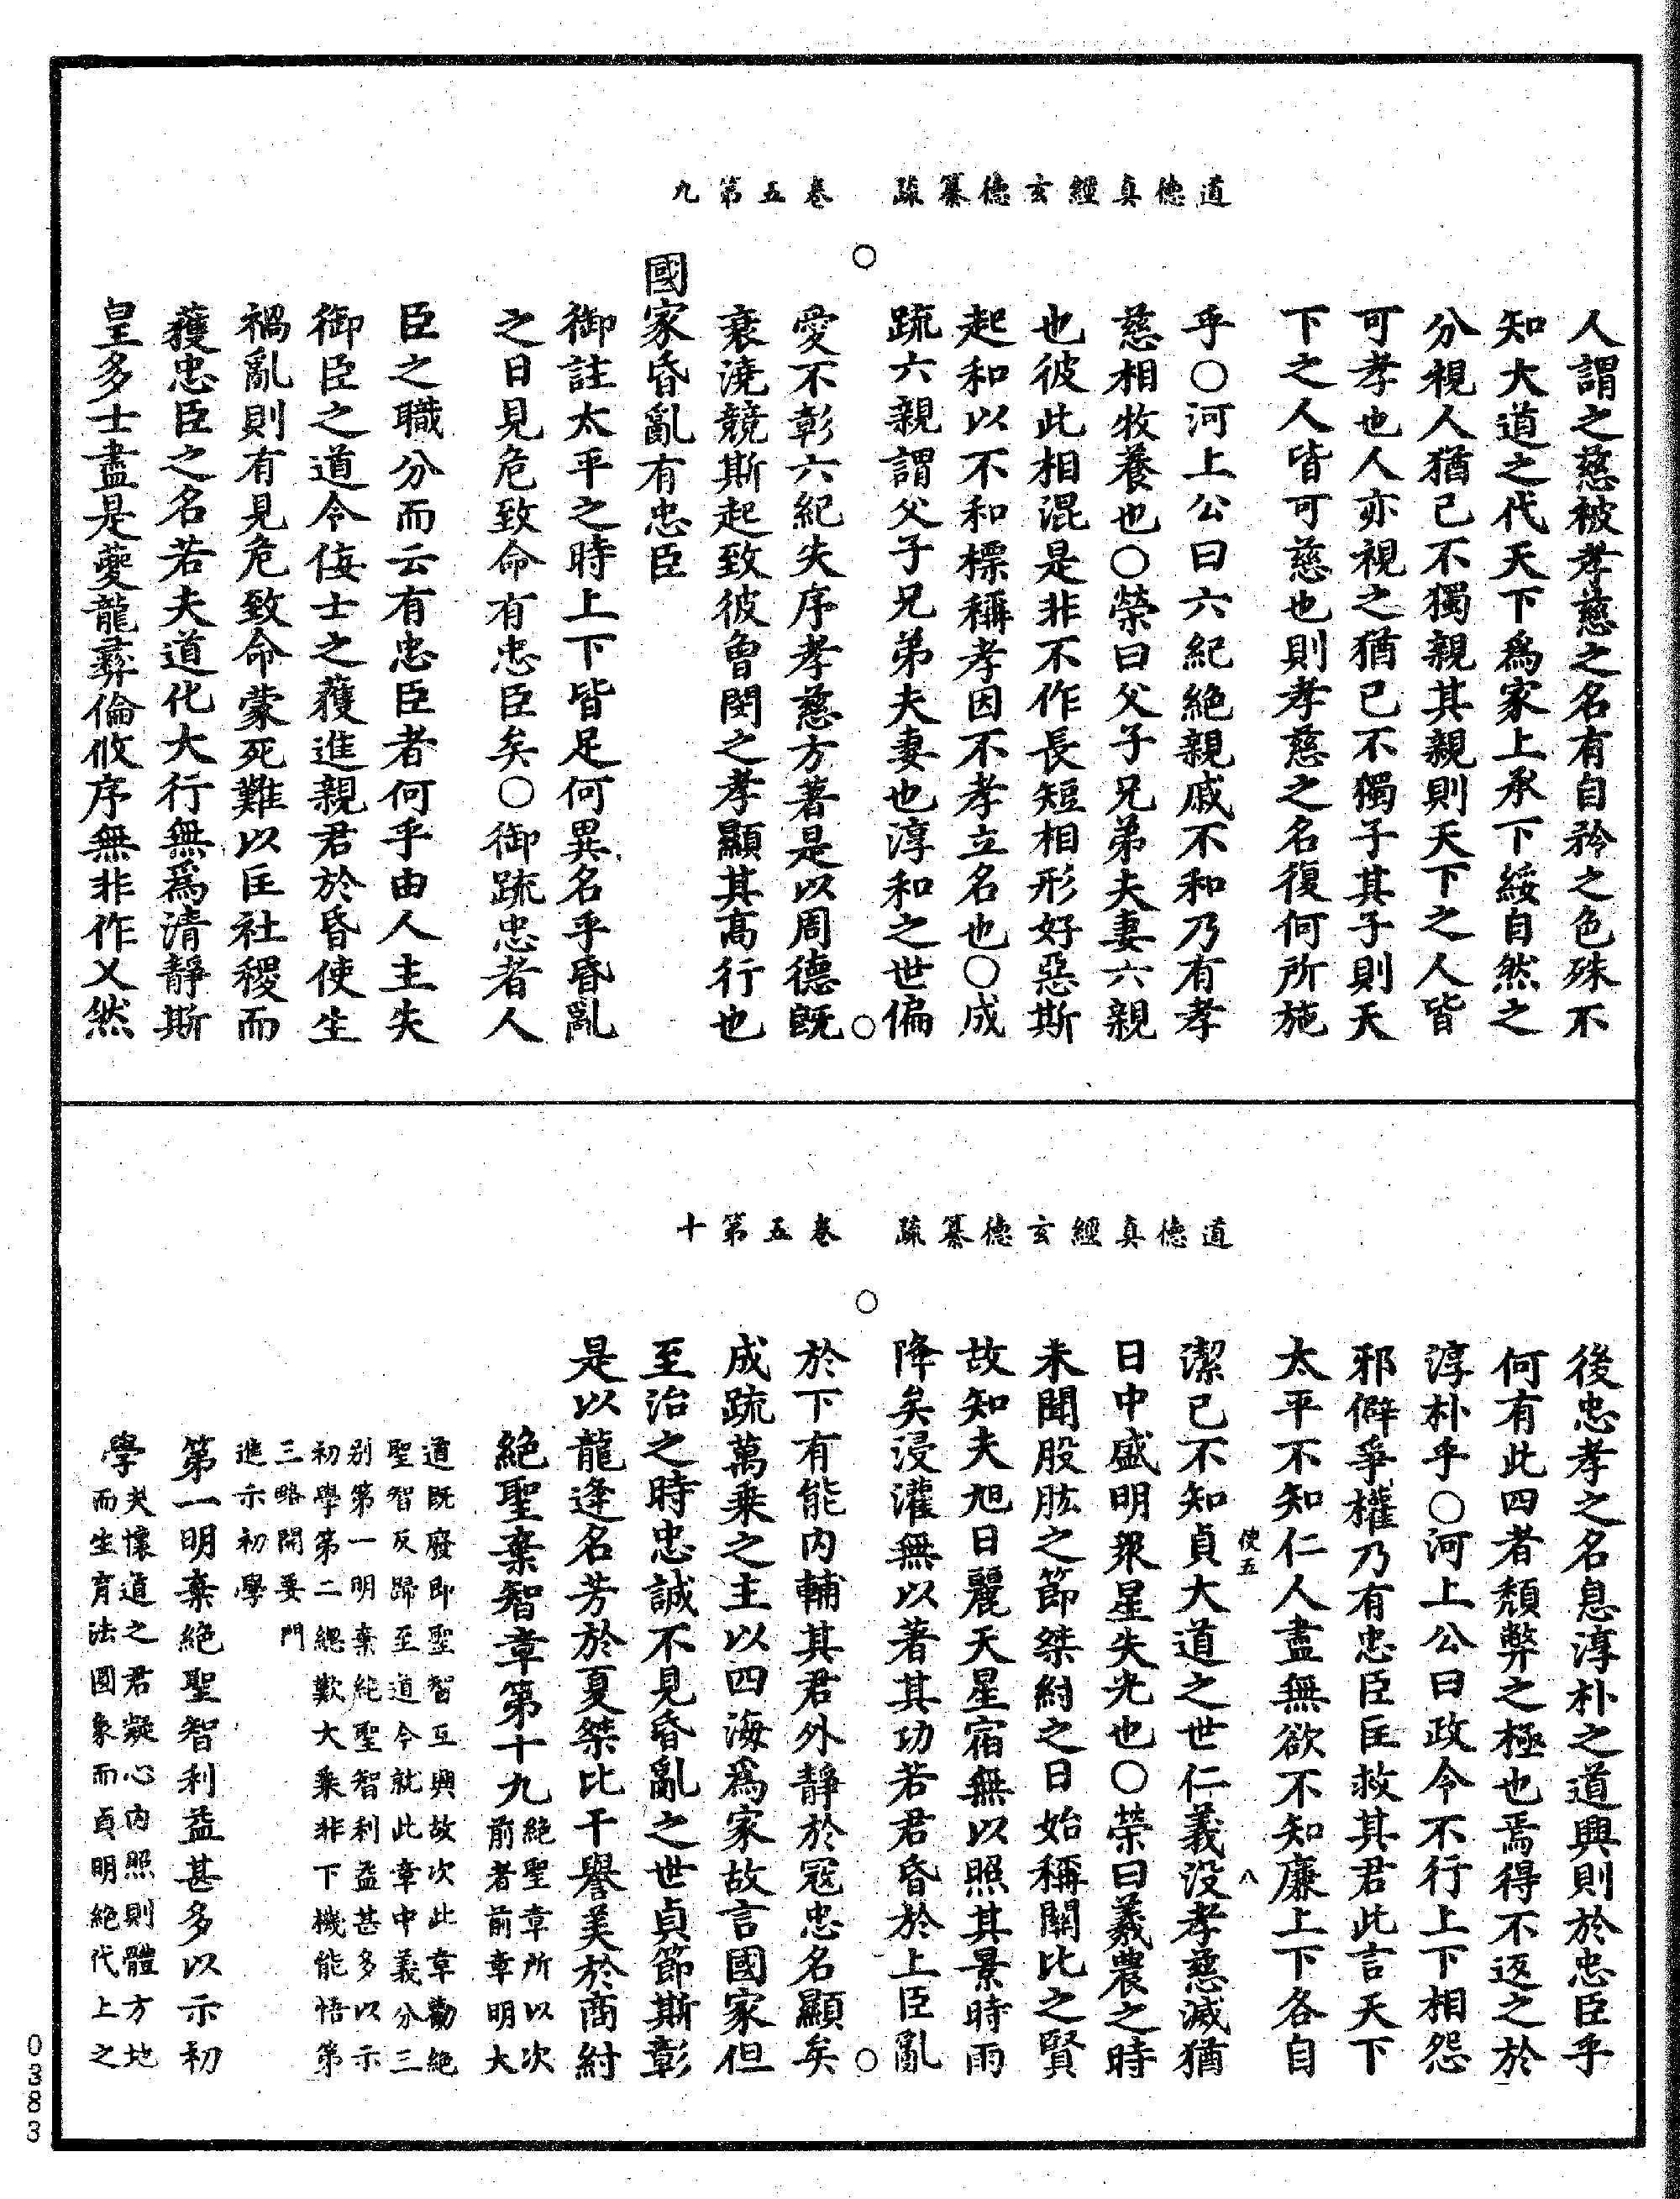 道德真經玄德纂疏　卷五第九
人謂之慈被孝慈之名有自矜之色殊不
知大道之代天下爲家上承下綏自然之
分視人猶己不獨親其親則天下之人皆
可孝也人亦視之猶已不獨子其子則天
下之人皆可慈也則孝慈之名復何所施
乎○河上公曰六紀絕親戚不和乃有孝
慈相牧養也○榮曰父子兄弟夫妻六親
也彼此相混是非不作長短相形好惡斯
起和以不和標稱孝因不孝立名也○成
疏六親謂父子兄弟夫妻也淳和之世偏
○　○
愛不彰六紀失序孝慈方著是以周德既
衰澆競斯起致彼曾閔之孝顯其高行也
國家昏亂有忠臣
御註太平之時上下皆足何異名乎昏亂
之日見危致命有忠臣矣○御疏忠者人
臣之職分而云有忠臣者何乎由人主失
御臣之道令侮士之蒦進親君於昏使生
禍亂則有見危致命蒙死難以匡社稷而
獲忠臣之名若夫道化大行無爲清靜斯
皇多士盡是夔龍彝倫攸序無非作乂然
道德真經玄德纂疏　卷五第十
後忠孝之名息淳朴之道興則於忠臣乎
何有此四者頹弊之極也焉得不返之於
淳朴乎○河上公曰政令不行上下相怨
邪僻爭權乃有忠臣匡救其君此言天下
太平不知仁人盡無欲不知廉上下各自
使五　八
潔已不知貞大道之世仁義没孝慈滅猶
日中盛明衆星失光也○榮曰羲農之時
未聞股肱之節桀紂之日始稱關比之賢
故知夫旭日麗天星宿無以照其景時雨
降矣浸灌無以著其功若君昏於上臣亂
○　○
於下有能内輔其君外靜於寇忠名顯矣
成疏萬乗之主以四海爲家故言國家但
至治之時忠誠不見昏亂之世貞節斯彰
是以龍逢名芳於夏桀比干譽美於商紂
絕聖棄智章第十九絕聖章所以次前者前章明大
道既廢即聖智互興故次此章勸絕
聖智反歸至道今就此章中義分三
别第一明棄絕聖智利益甚多以示
初學第二緫歎大乘非下機能悟第
三略開要門
進示初學
第一明棄絕聖智利益甚多以示初
學夫懷道之君凝心内照則體方地而生育法圓象而貞明絕代上之
0383